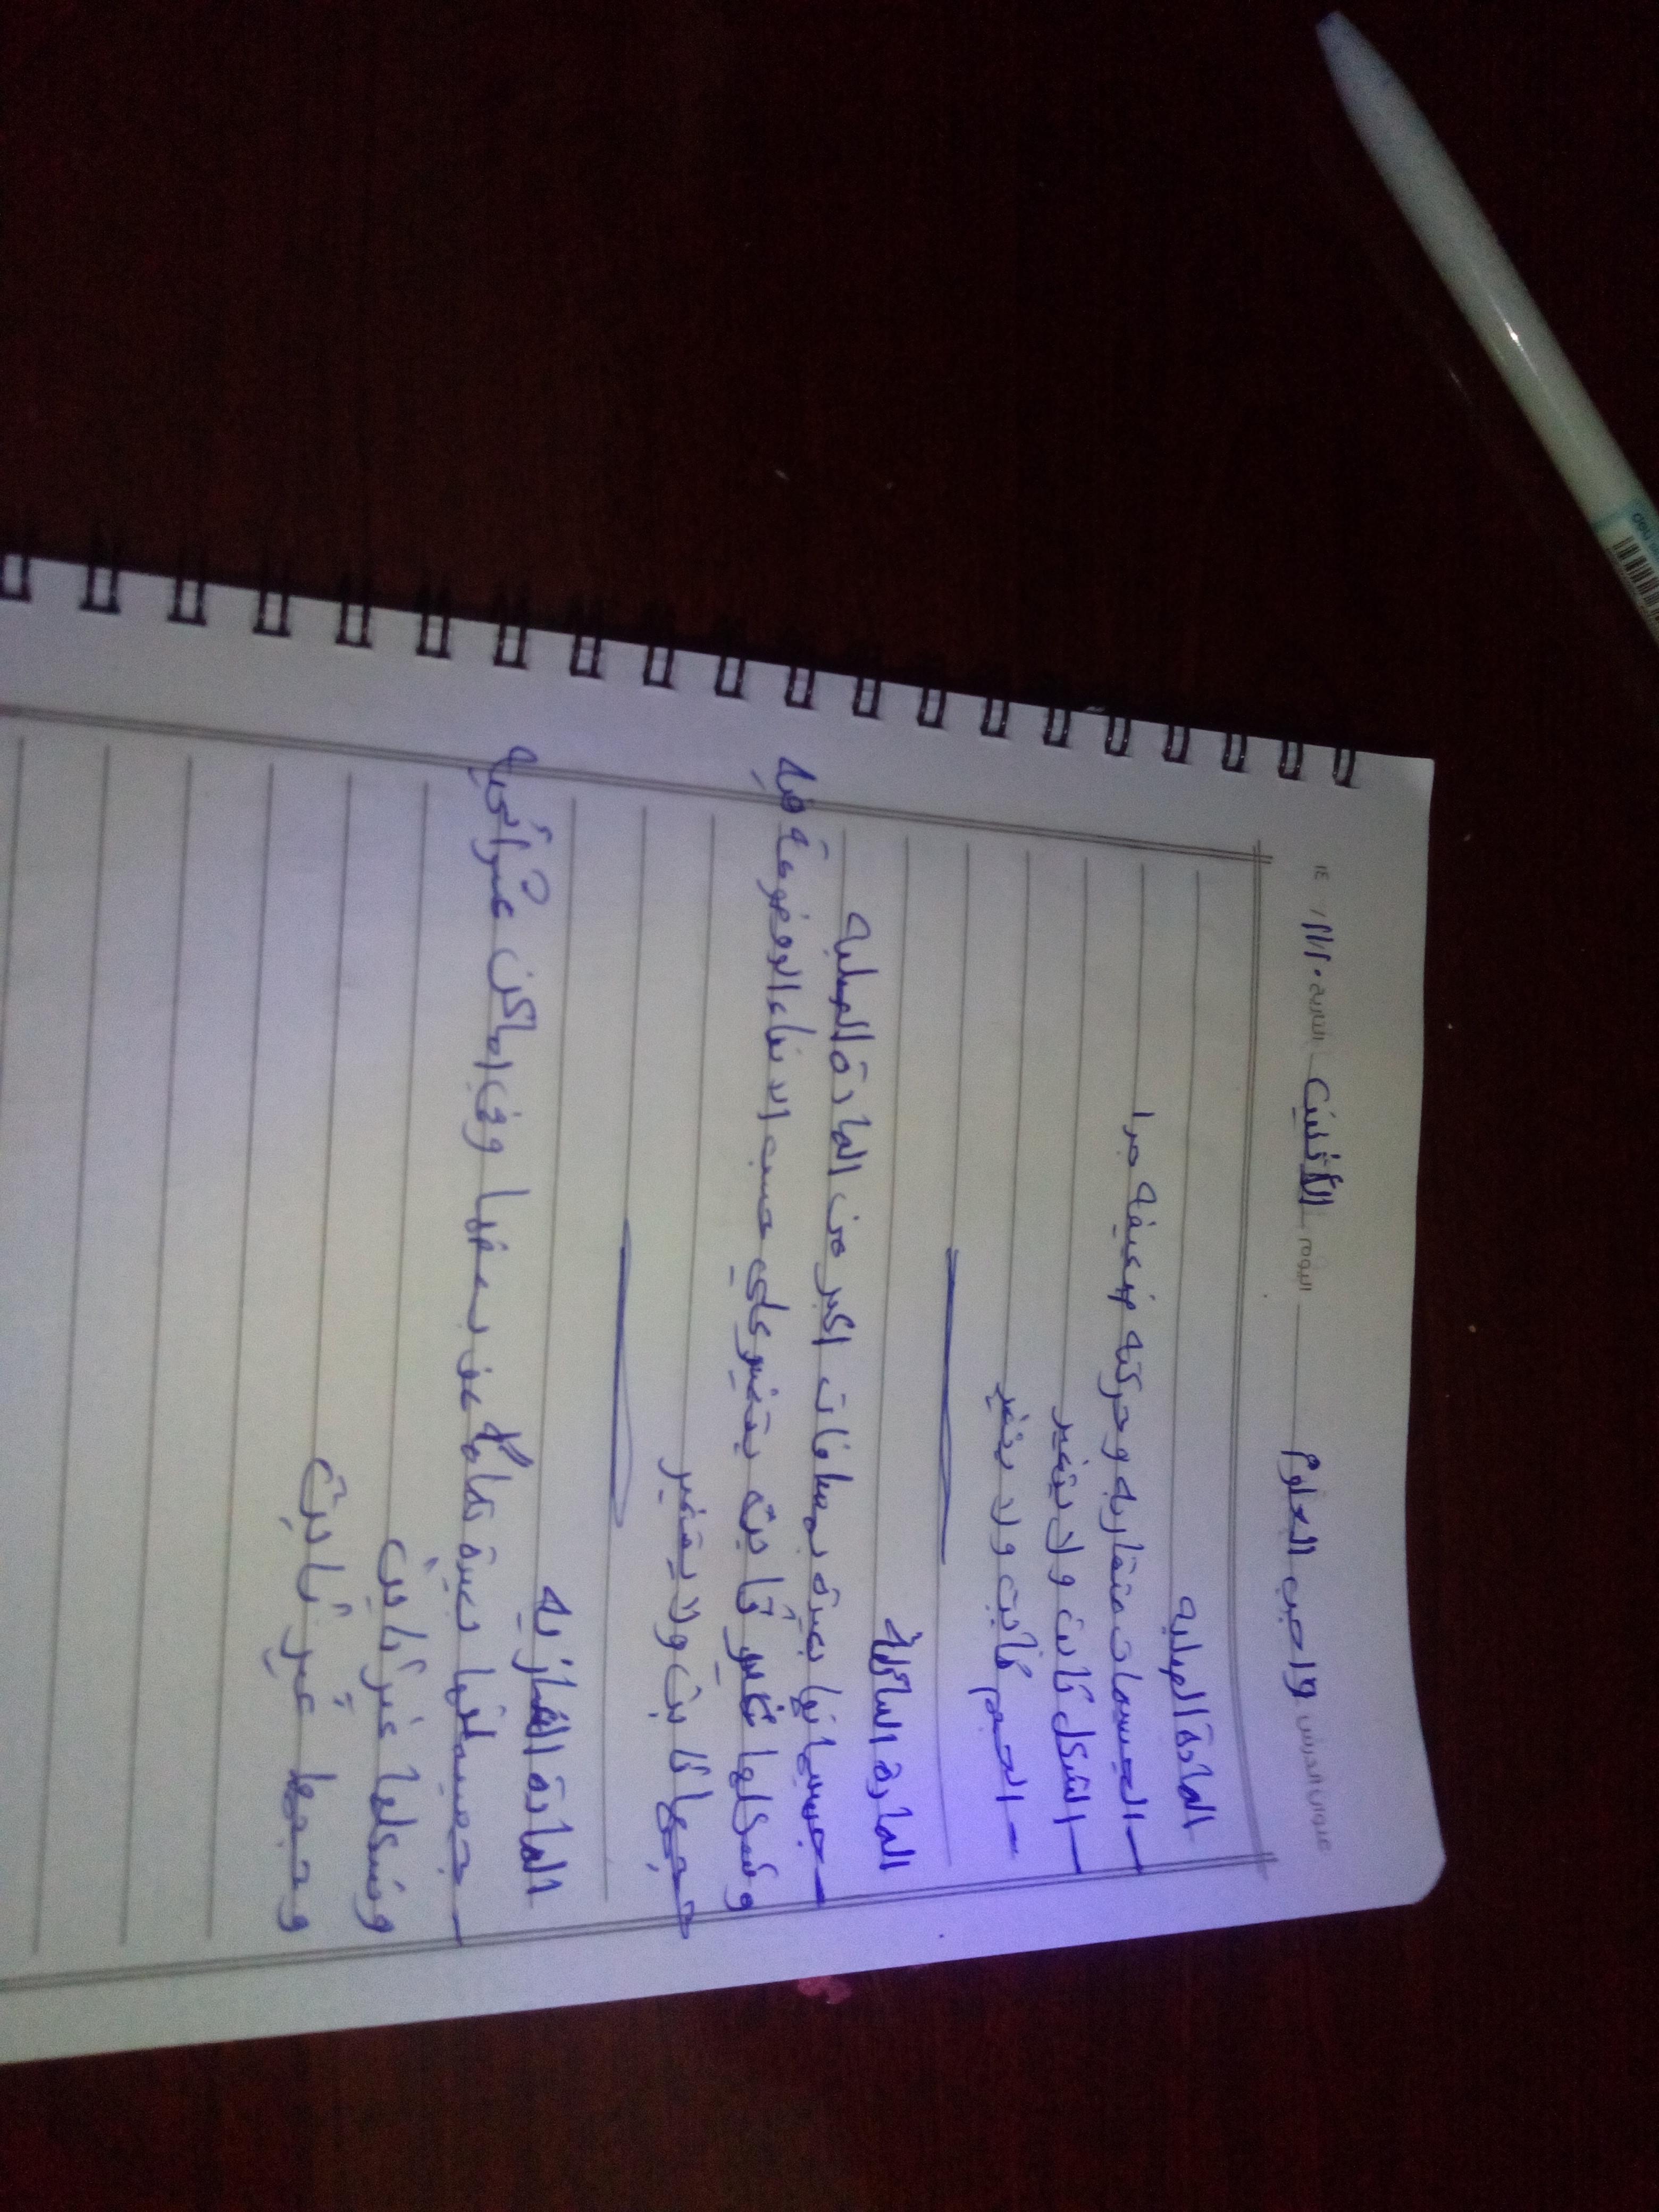 عنوان الدرس واجب العلوم اليوم الأثنين التاريخ ١٤
المادة الصلبه
- الجسيمات متقاربه وحركته ضعيفه جدا
- الشكل ثابت ولا يتغير
- الحجم ثابت ولا يتغير
المادة السائلة
- جسيماتها بعيدة بمسافات اكبر من المادة الصلبه
وشكلها غير ثابت يتغير على حسب الاناء الموضوعة فيه
حجمها ثابت ولا يتغير
المادة الغازيه
- جسيماتها بعيدة تمامًا عن بعضها وفي اماكن عشوائيه
وشكلها غير ثابت
وحجمها غير ثابت